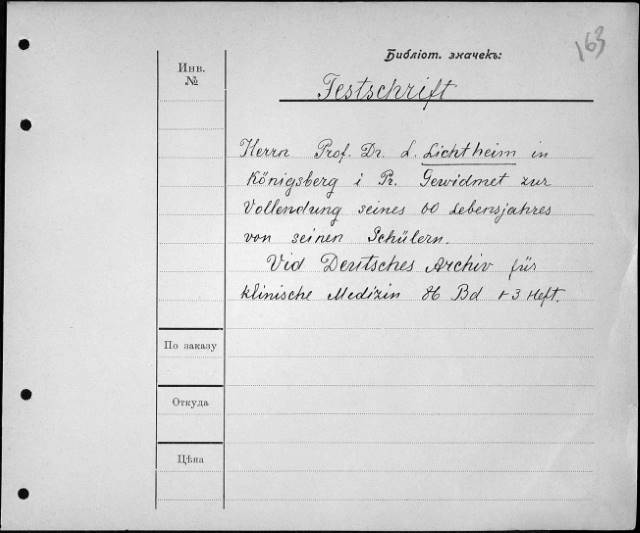 Библіот. значекъ:
163
Инв.
№
Festschrift
Herrn Prof. Dr. L. Lichtheim in
Königsberg i Pr. Gewidmet zur
Vollendung seines 60 Lebensjahres
von seinen Schülern.
Vid Deutsches Archiv für
klinische Medizin 86 Bd 1-3 Heft.
По заказу
Откуда
Цѣна